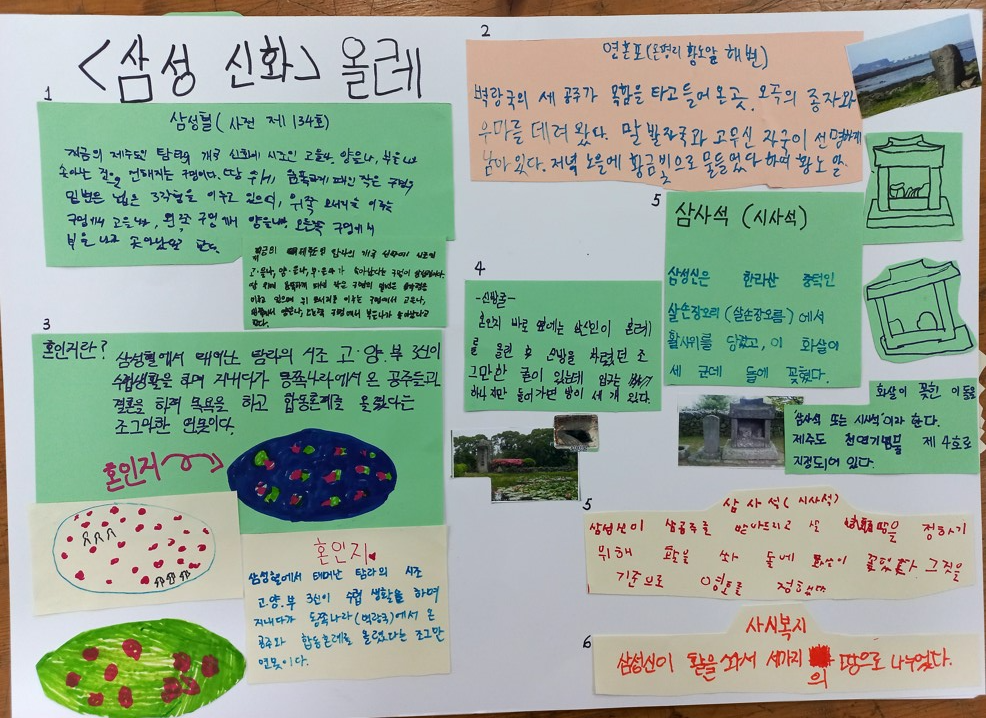 <삼성 신화> 올레
1
삼성혈 (사전 제 134호)
지금의 제주도인 탐라의 개국 신화에 시조인 고을나, 양을나, 부을나가
솟아난 것을 전해지는 구멍이다. 땅 위에 움푹하게 패인 작은 구멍,
밑변은 넓은 3각형을 이루고 있으며, 위쪽 모서리를 이루는
구멍에서 고을나, 왼쪽 구멍에서 양을나, 오른쪽 구멍에서
부을나가 솟아났다 한다.
고·을나, 양·을나, 부·을나가 솟아났다는 구멍이
이루고 있으며 위 모서리를 이루는 구멍에서 고을나,
왼쪽에서 양을나, 오른쪽 구멍에서 부을나가 솟아났다고
한다.
2
연혼포 (온평리 황노알 해변)
벽랑국의 세 공주가 목함을 타고 들어 온 곳. 오곡의 종자와
우마를 데려 왔다. 말 발자국과 고무신 자국이 선명하게
남아 있다. 저녁 노을에 황금빛으로 물들었다 하여 황노알
3
혼인지란? 삼성혈에서 태어난 탐라의 시조 고·양·부 3신이
수렵생활을 하며 지내다가 동쪽나라에서 온 공주들과
결혼을 하려 목욕을 하고 합동혼례를 올렸다는
조그마한 연못이다.
혼인지
혼인지
삼성혈에서 태어난 탐라의 시조
고·양·부 3신이 수렵 생활을 하며
지내다가 동쪽나라 (벽랑국)에서 온
공주와 합동혼례를 올렸다는 조그만
연못이다.
4
-신방굴-
혼인지 바로 옆에는 삼신인이 혼례
를 올린 후 신방을 차렸던 조
그만한 굴이 있는데 입구는
하나지만 들어가면 방이 세 개 있다.
5
삼사석 (시사석)
삼성신은 한라산 중턱인
살손장오리 (살손장오름)에서
활시위를 당겼고, 이 화살이
세 군데 돌에 꽂혔다.
화살이 꽂힌 이 돌을
'삼사석 또는 시사석'이라 한다.
제주도 천연기념물 제 4호로
지정되어 있다.
5
삼사석 (시사석)
삼성신이 삼공주를 받아드리고 살 땅을 정하기
위해 활을 쏴 돌에 화살이 꽂혔다 그것을
기준으로 영토를 정했다
사시복지
6
삼성신이 활을 쏴서 세가지의 땅으로 나누었다.